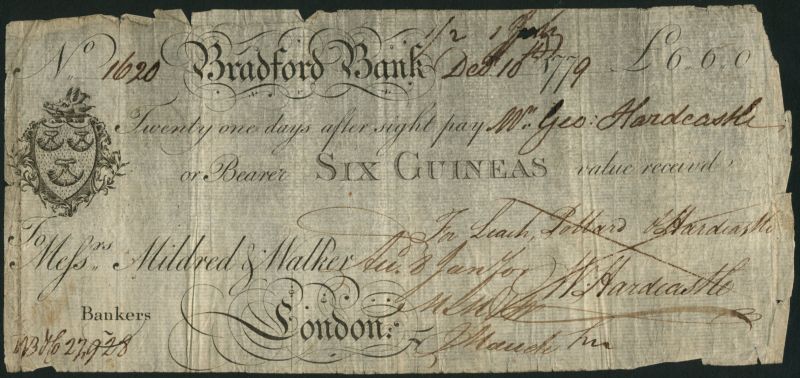 1/2
No. 1620 Bradford Bank Decr. 10th 1779 £6.6.0
Twenty one days after sight pay Mr. Geo: Hardcastle
or Bearer SIX GUINEAS value received
For Leach, Pollard & Hardcastle
To Messrs. Mildred & Walker
W. Hardcastle
Bankers London: